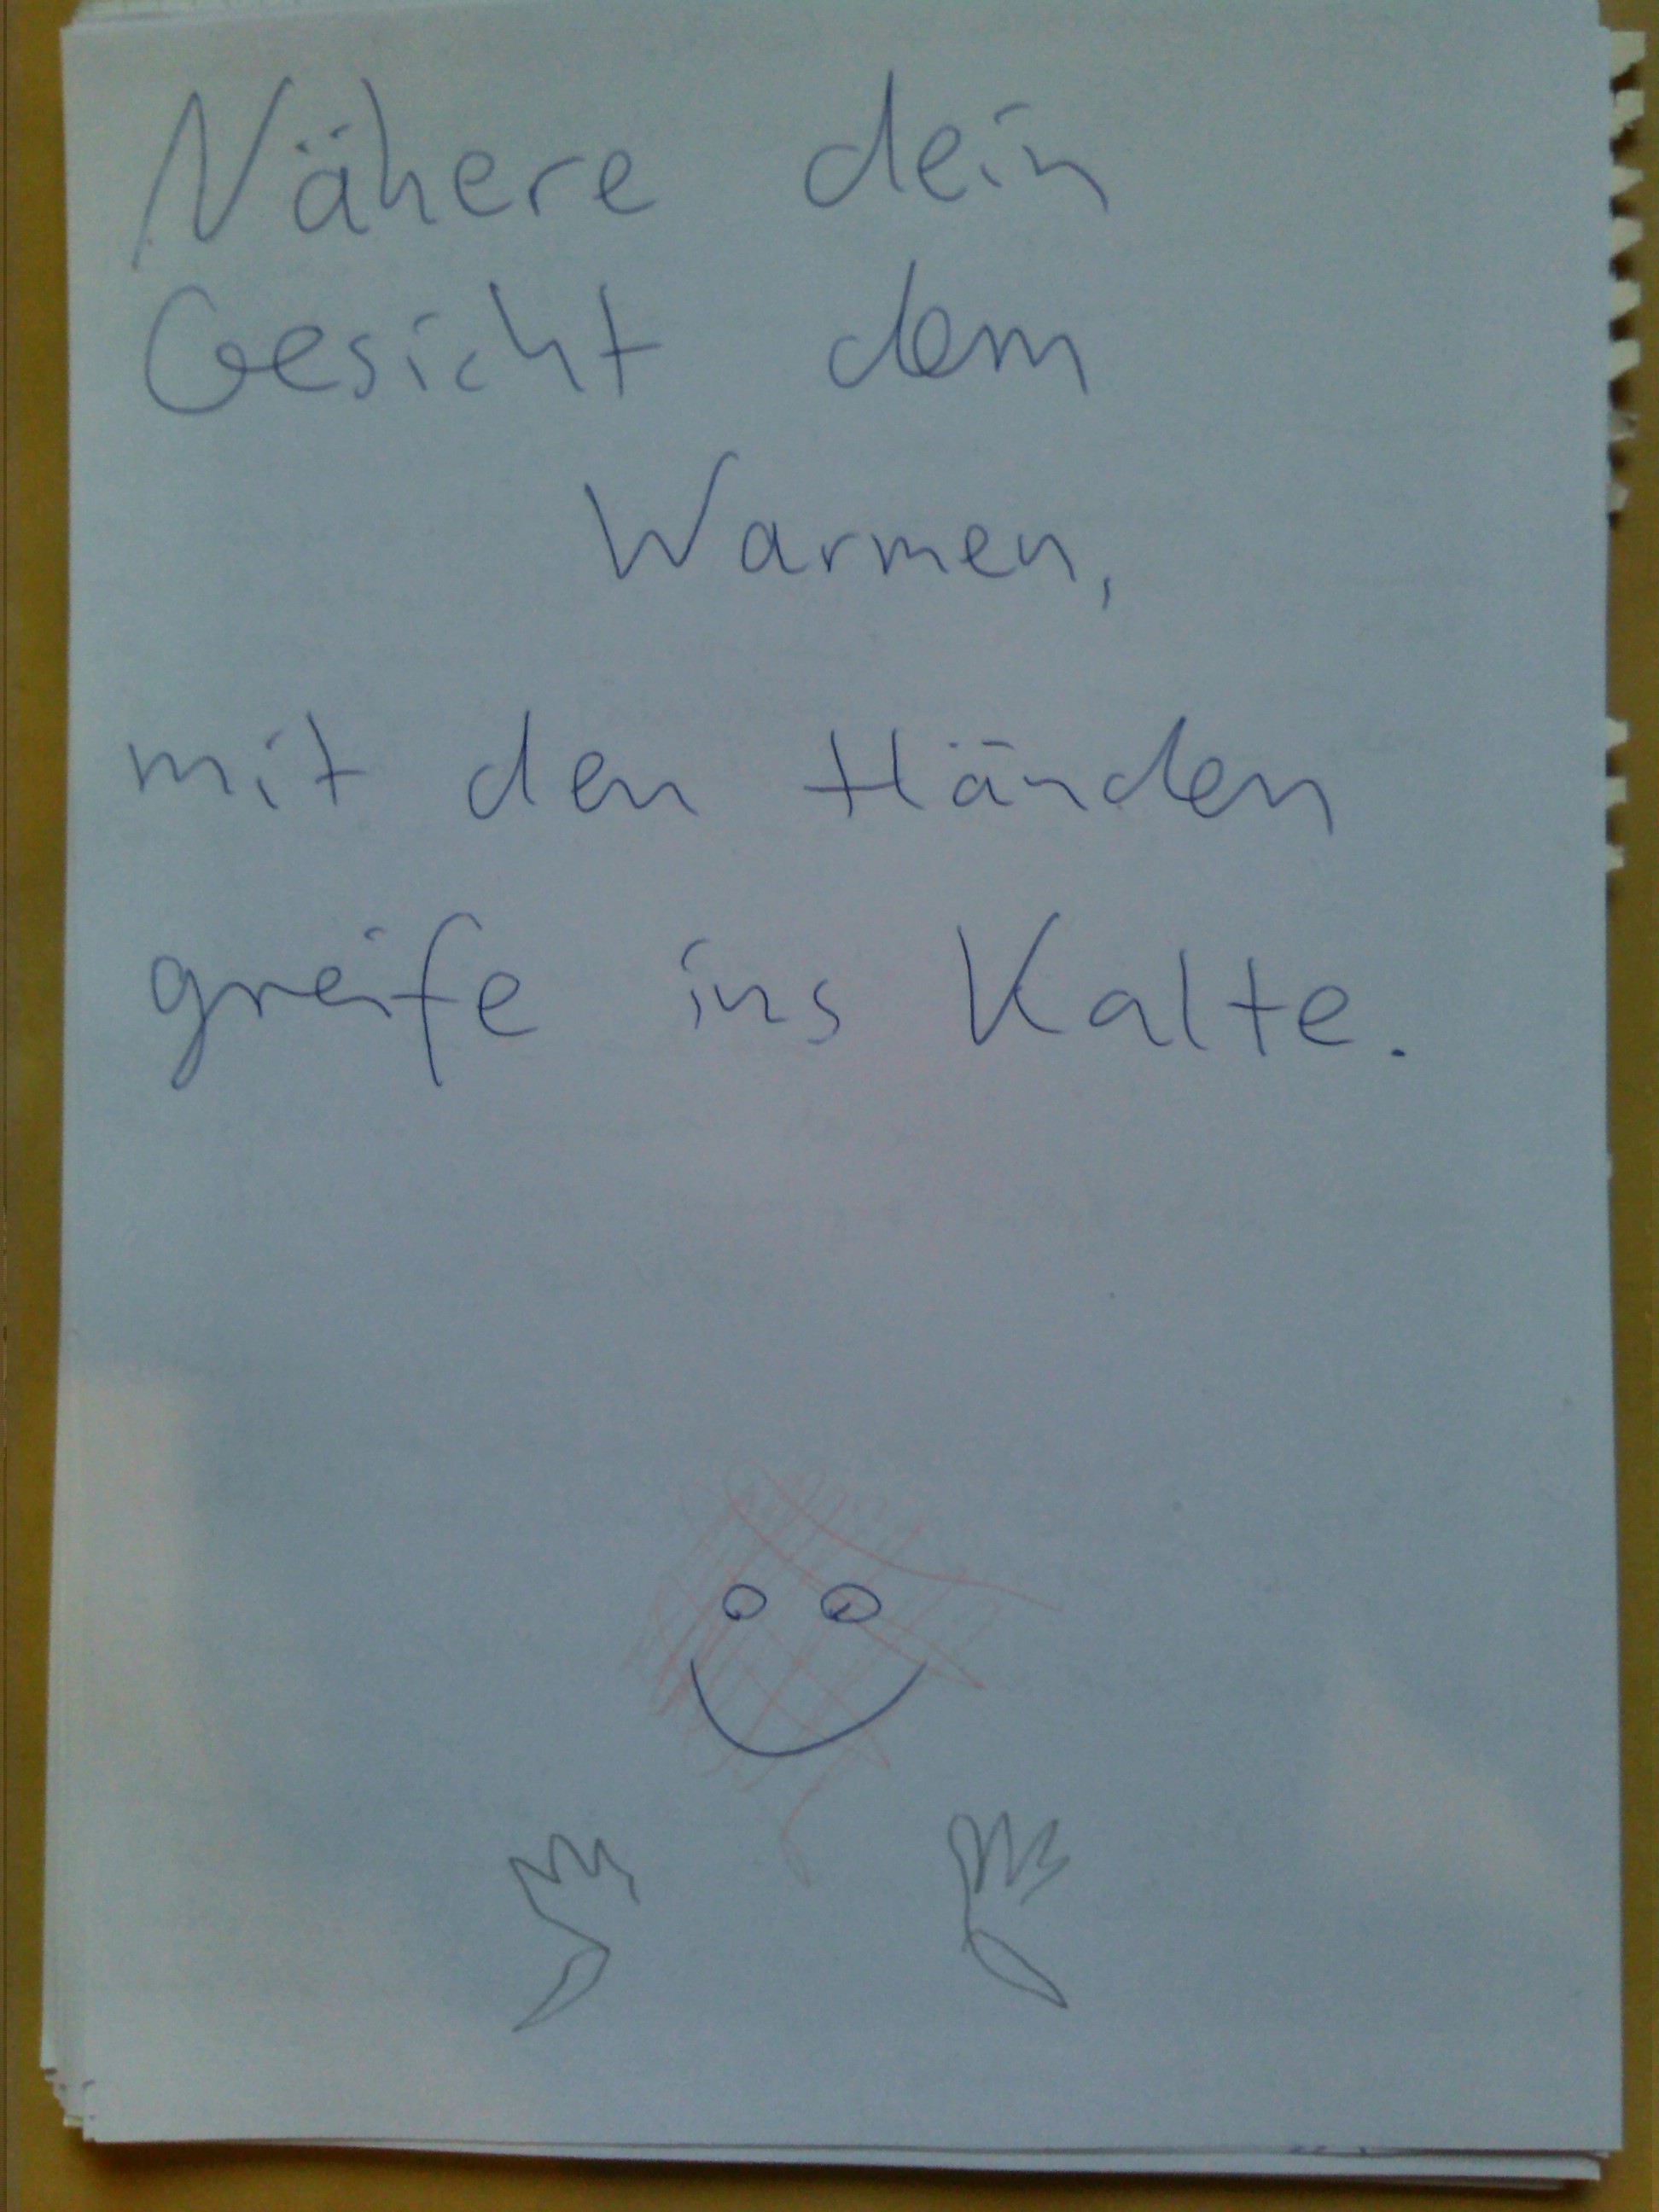 Nähere dein
Gesicht dem
Warmen,
mit den Händen
greife ins Kalte.